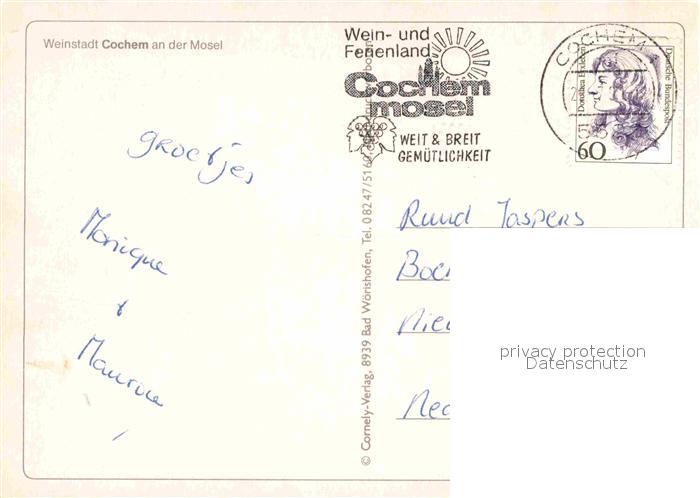 Weinstadt Cochem an der Mosel
Wein- und
Ferienland
Cochem
mosel
WEIT & BREIT
GEMÜTLICHKEIT
COCHEM
Dorothea Erxleben
Deutsche Bundespost
60
groetjes
Monique
&
Maurice
© Cornely-Verlag, 8939 Bad Wörishofen, Tel. 0 82 47/51 60
Ruud Jaspers
privacy protection
Datenschutz